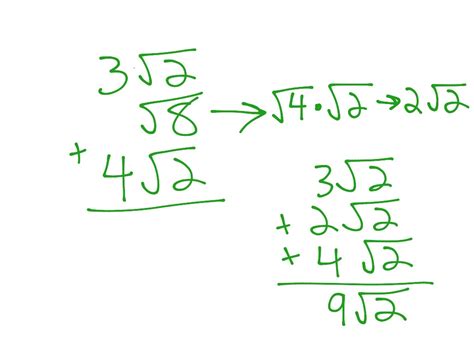 3√2
√8 → √4 · √2 → 2√2
+ 4√2
3√2
+ 2√2
+ 4√2
9√2